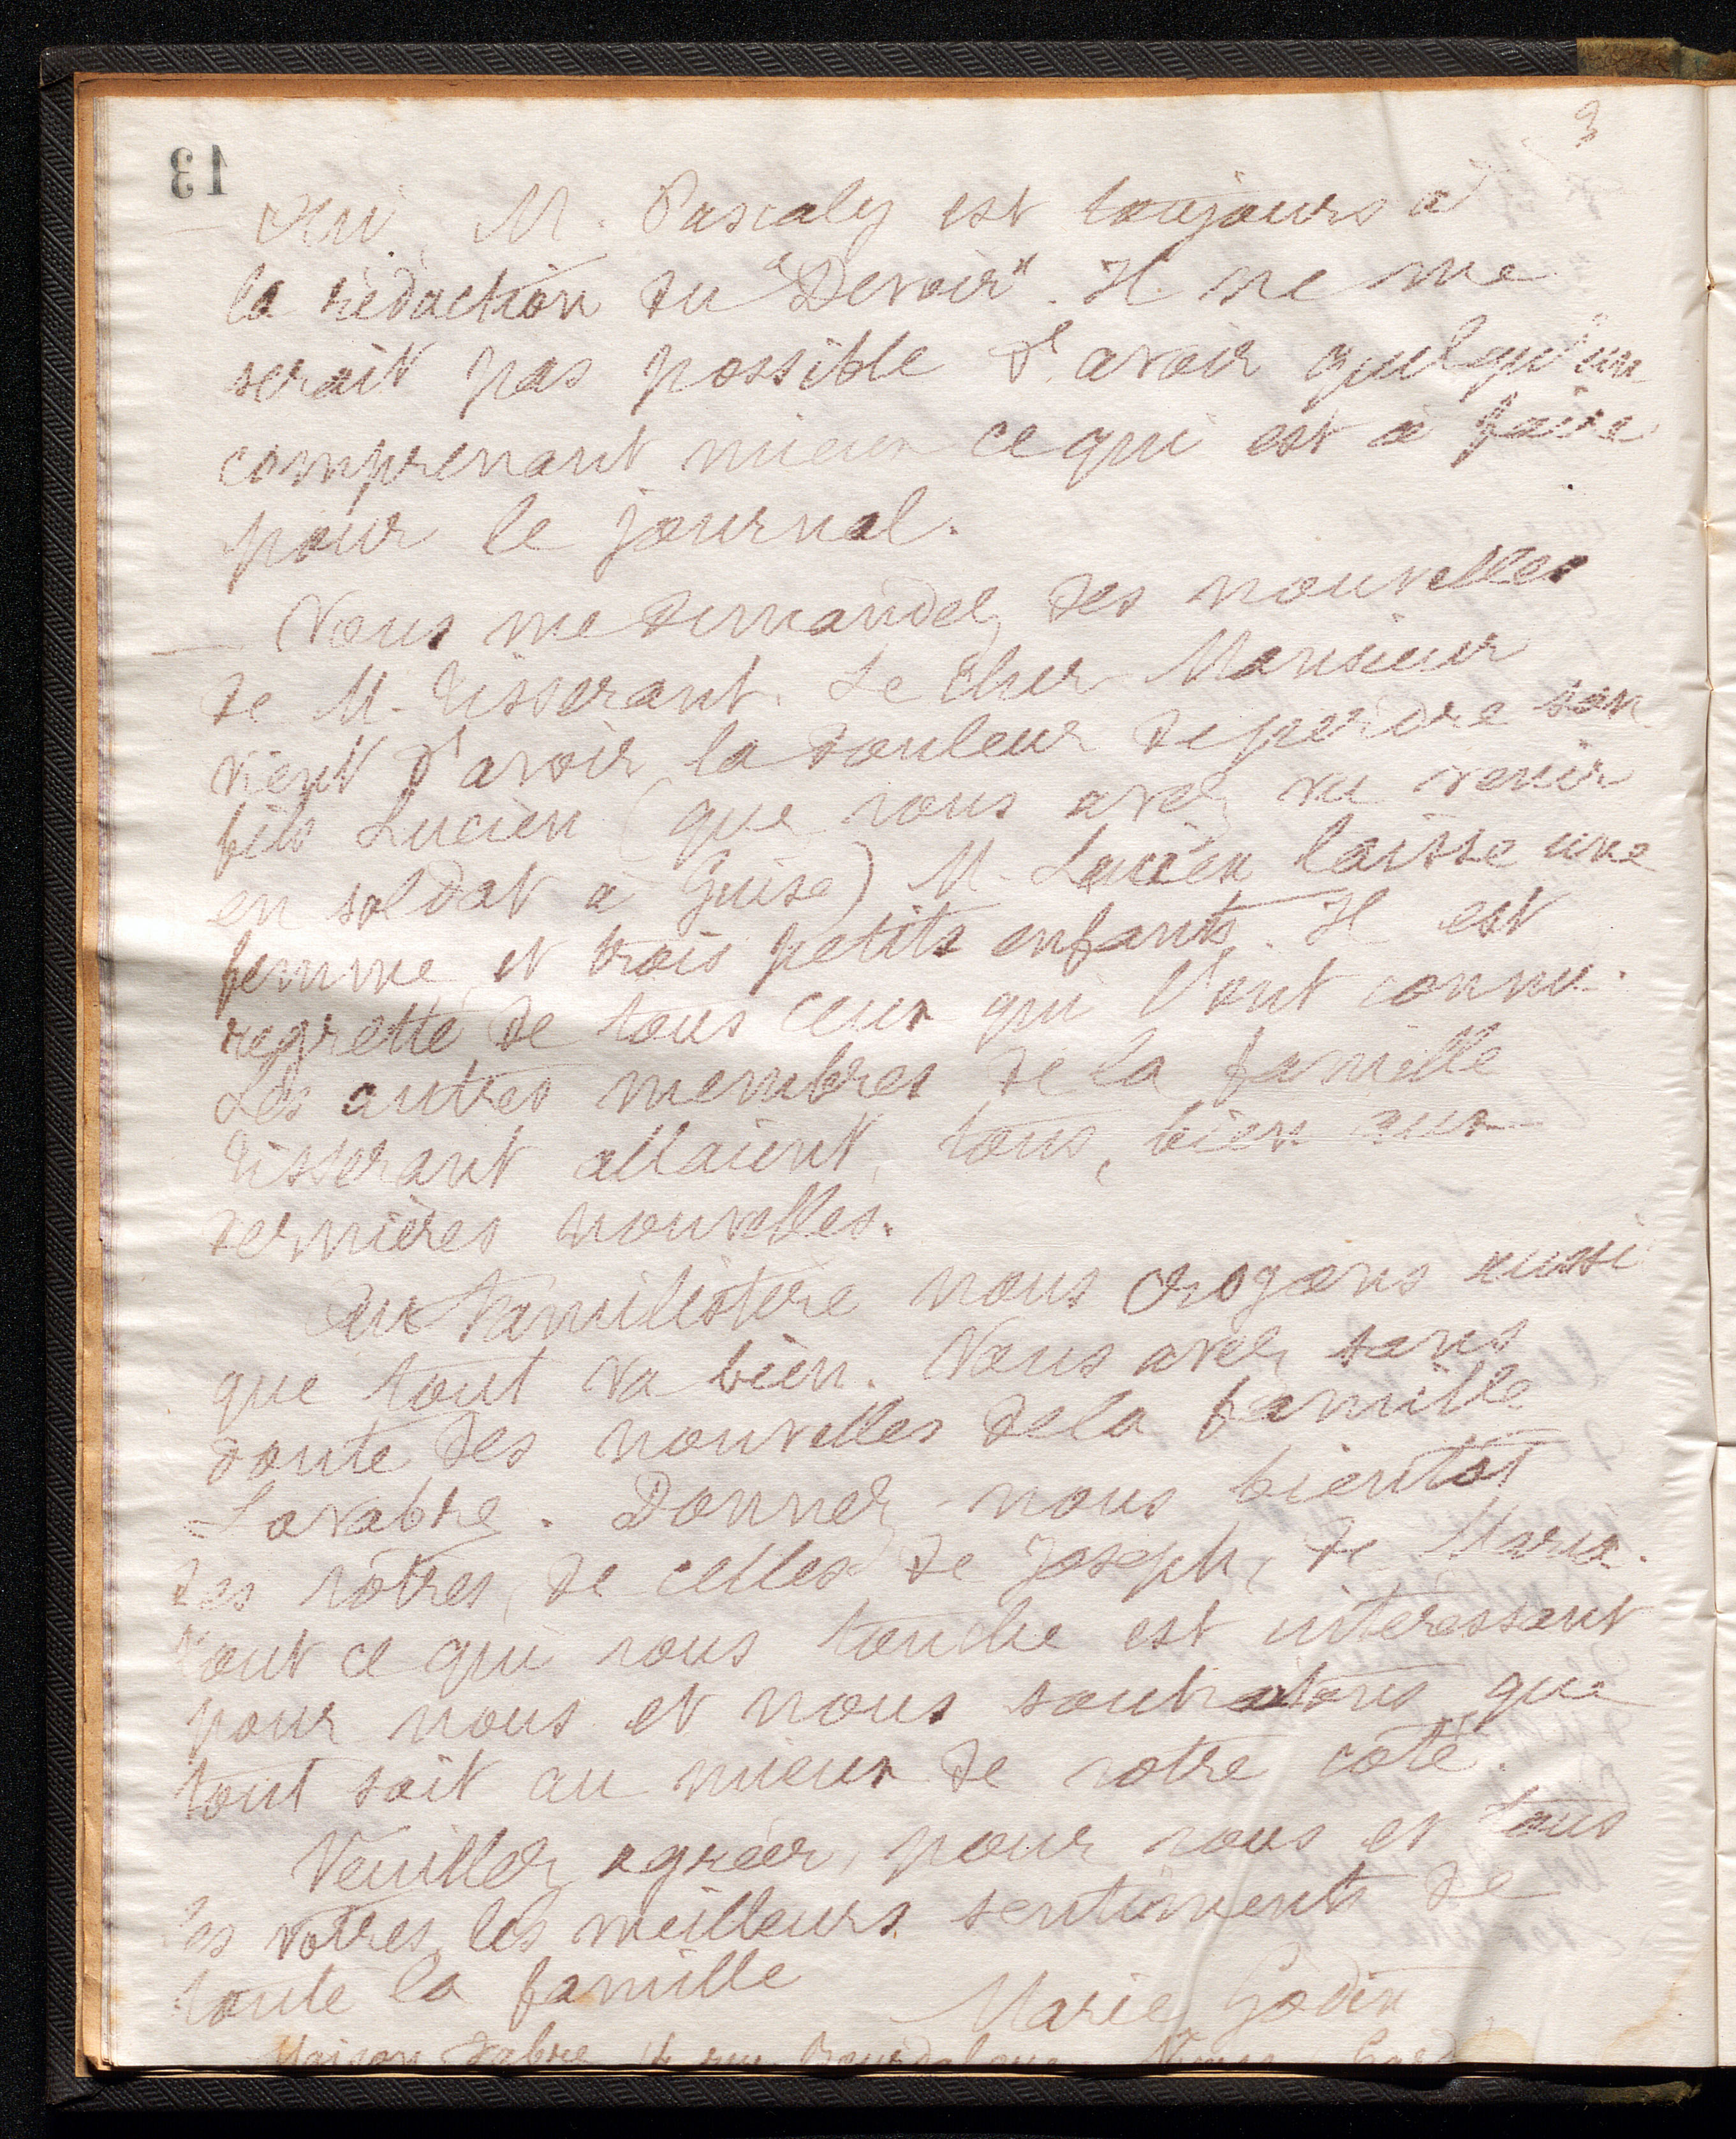 3
13
— Oui, M. Pascaly est toujours à
la rédaction du "Devoir". Il ne me
serait pas possible d'avoir quelqu'un
comprenant mieux ce qui est à faire
pour le journal.
— Vous me demandez des nouvelles
de M. Tisserant. Le cher Monsieur
vient d'avoir la douleur de perdre son
fils Lucien (que vous avez vu venir
en soldat à Guise) M. Lucien laisse une
femme et trois petits enfants. Il est
regretté de tous ceux qui l'ont connu.
Les autres membres de la famille
Tisserant allaient, tous, bien aux
dernières nouvelles.
Au Familistère nous croyons aussi
que tout va bien. Vous avez sans
doute des nouvelles de la famille
Lavabre. Donnez-nous bientôt
des vôtres, de celles de Joseph, de Marie.
Tout ce qui vous touche est intéressant
pour nous et nous souhaitons que
tout soit au mieux de votre côté.
Veuillez agréer, pour vous et tous
les vôtres, les meilleurs sentiments de
toute la famille
Marie Godin
Maison Fabre, rue Bourdaloue Nîmes Gard